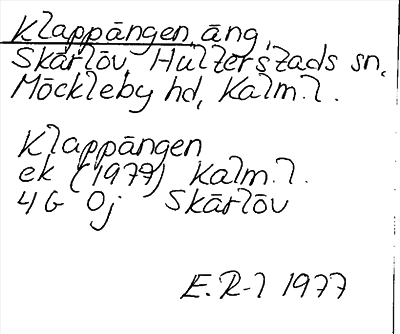 Klappängen, äng,
Skärlöv, Hulterstads sn,
Möckleby hd, Kalm. l.
Klappängen
ek (1979) Kalm. l.
4G 0j Skärlöv
E. R-l 1977